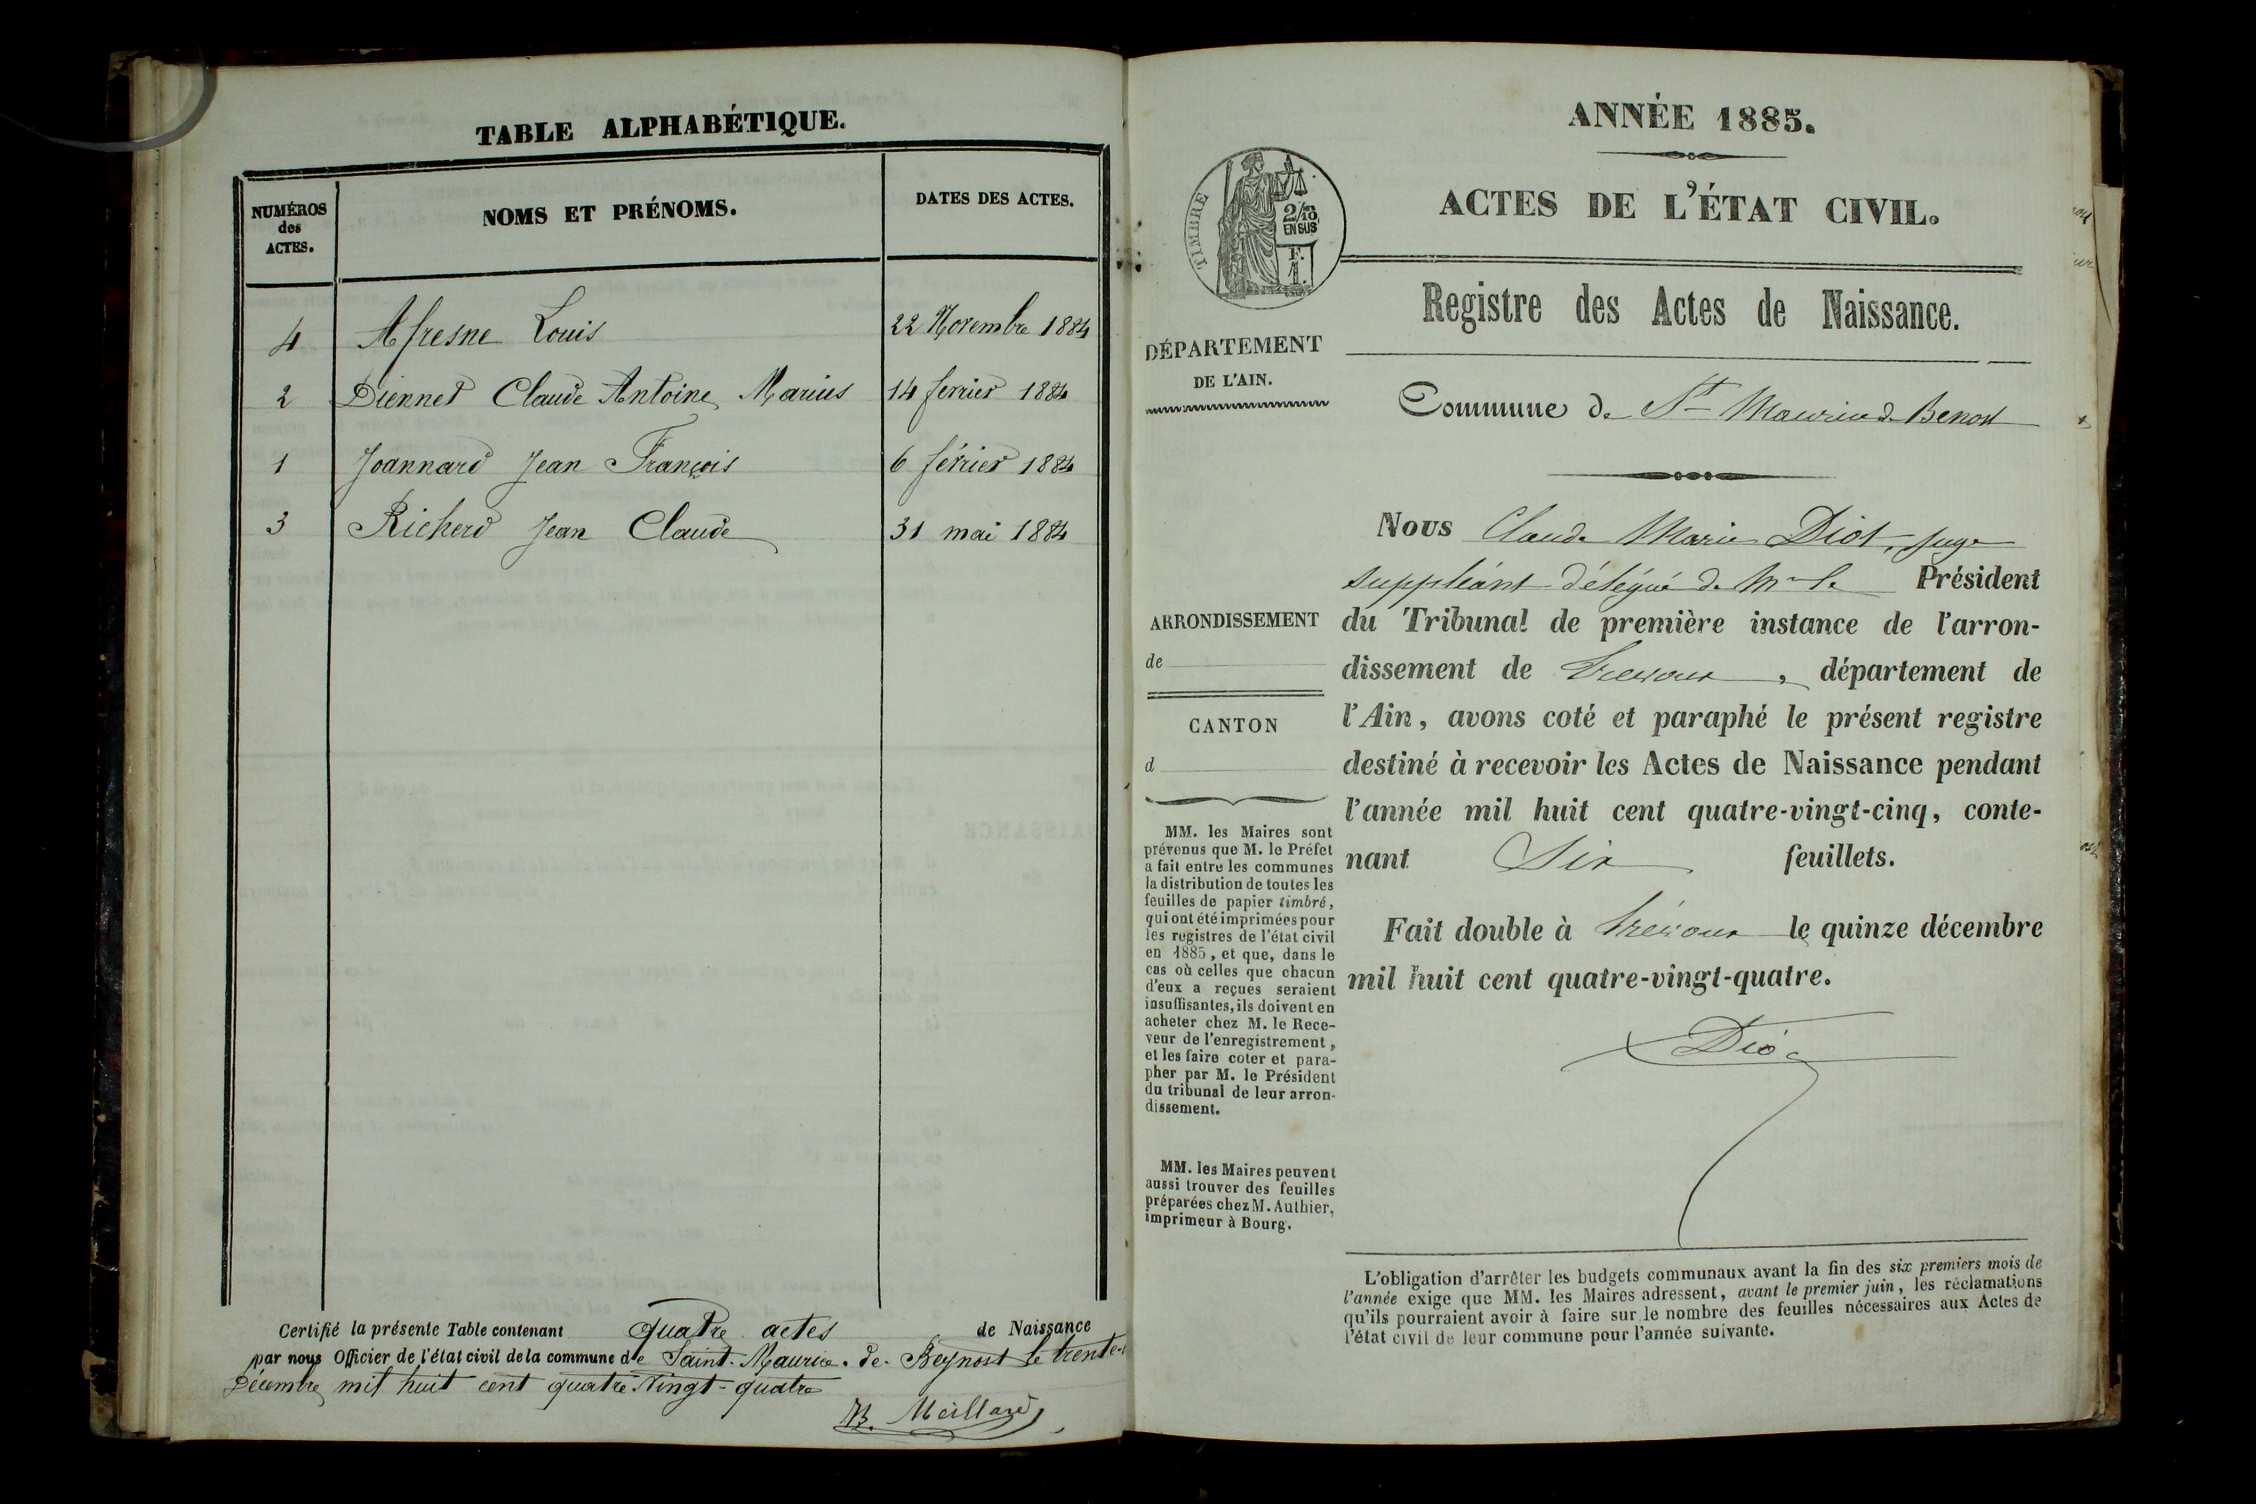 TABLE ALPHABÉTIQUE.
NUMÉROS
des
ACTES.
NOMS ET PRÉNOMS.
DATES DES ACTES.
4 Afresne Louis 22 Novembre 1884
2 Diennet Claude Antoine Marius 14 fevrier 1884
1 Joannard Jean François 6 février 1884
3 Richerd Jean Claude 31 mai 1884
Certifié la présente Table contenant quatre actes de Naissance
par nous Officier de l'état civil de la commune de Saint-Maurice-de-Beynost le trente-
Décembre mil huit cent quatre-vingt-quatre
B. Meillard
ANNÉE 1885.
ACTES DE L'ÉTAT CIVIL.
TIMBRE
2/10
EN SUS
F.
1.
Registre des Actes de Naissance.
DÉPARTEMENT
DE L'AIN.
Commune de St Maurice de Benost
Nous Claude Marie Diot, juge
suppléant délégué de Mr le Président
ARRONDISSEMENT
de
du Tribunal de première instance de l'arron-
dissement de Trevoux, département de
CANTON
d
l'Ain, avons coté et paraphé le présent registre
destiné à recevoir les Actes de Naissance pendant
l'année mil huit cent quatre-vingt-cinq, conte-
nant Six feuillets.
Fait double à Trévoux le quinze décembre
mil huit cent quatre-vingt-quatre.
Diot
MM. les Maires sont
prévenus que M. le Préfet
a fait entre les communes
la distribution de toutes les
feuilles de papier timbré,
qui ont été imprimées pour
les registres de l'état civil
en 1885, et que, dans le
cas où celles que chacun
d'eux a reçues seraient
insuffisantes, ils doivent en
acheter chez M. le Rece-
veur de l'enregistrement,
et les faire coter et para-
pher par M. le Président
du tribunal de leur arron-
dissement.
MM. les Maires peuvent
aussi trouver des feuilles
préparées chez M. Authier,
imprimeur à Bourg.
L'obligation d'arrêter les budgets communaux avant la fin des six premiers mois de
l'année exige que MM. les Maires adressent, avant le premier juin, les réclamations
qu'ils pourraient avoir à faire sur le nombre des feuilles nécessaires aux Actes de
l'état civil de leur commune pour l'année suivante.